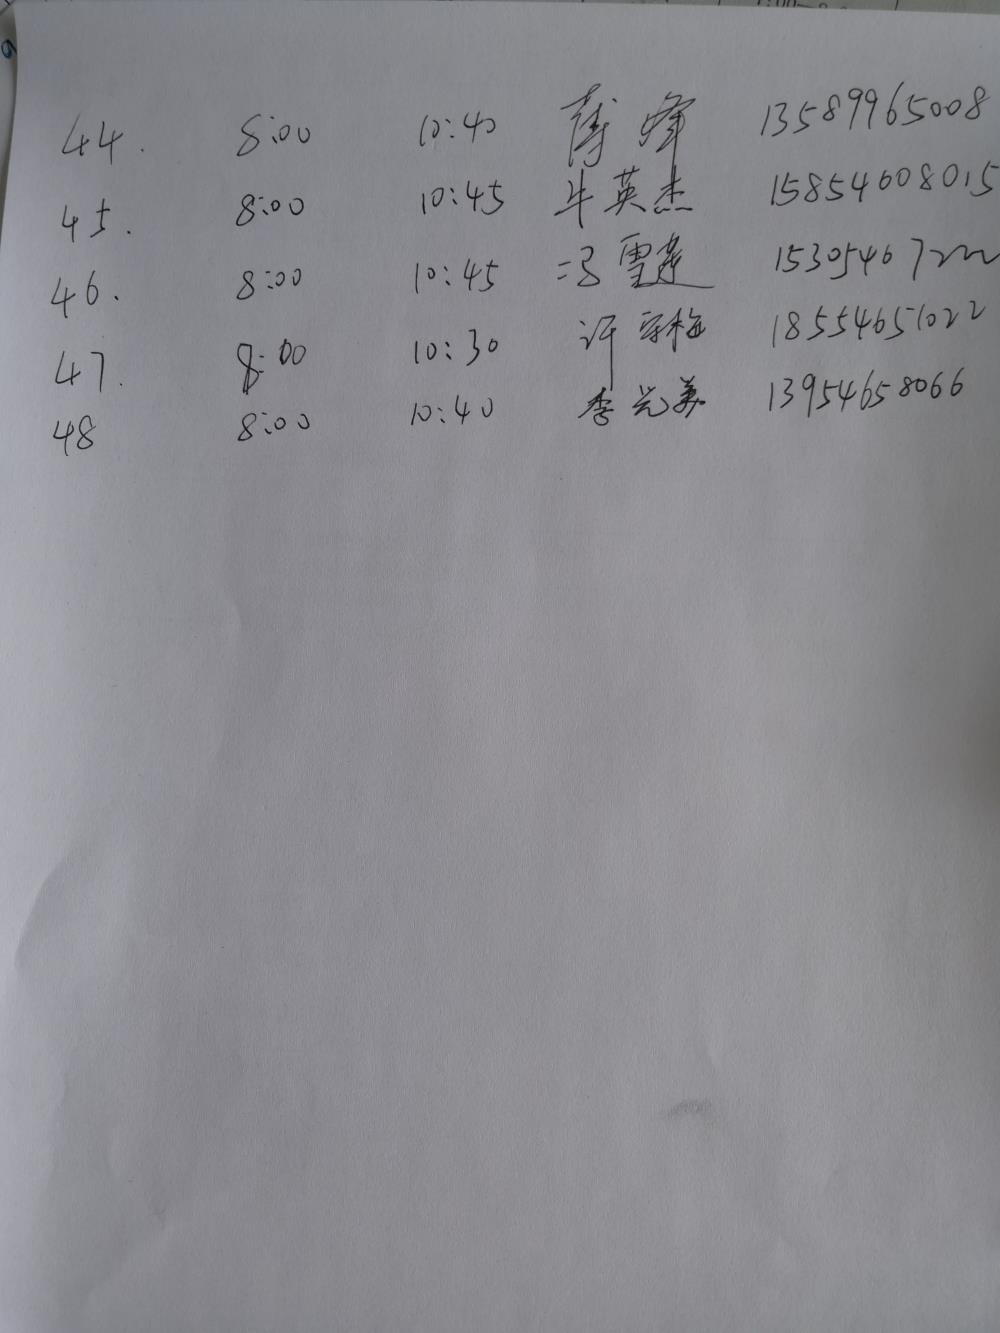 44. 8:00 10:40 薄峰 13589965008
45. 8:00 10:45 牛英杰 15854608015
46. 8:00 10:45 冯雪莲 15305467222
47. 8:00 10:30 许守梅 18554651022
48 8:00 10:40 李光美 13954658066